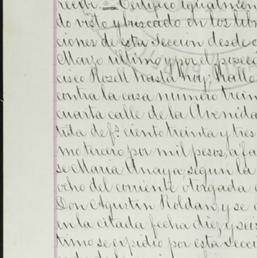 recib. = Certifico igualmen
do visto y buscado en los libr
ciones de esta seccion desde
Marzo último y por el poseed
cisco Rozell hasta hoy; hallo
contra la casa numero trein
cuarta calle de la Avenida
tida de fs. ciento treinta y tres
mo tercio por mil pesos, a fa
se Maria Anaya, segun la
ocho del corriente otorgada
Don Agustin Roldan, y se
en la citada fecha diez y seis
timo se expidio por esta Secci